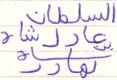 السلطان
عادل شاه
بهادر